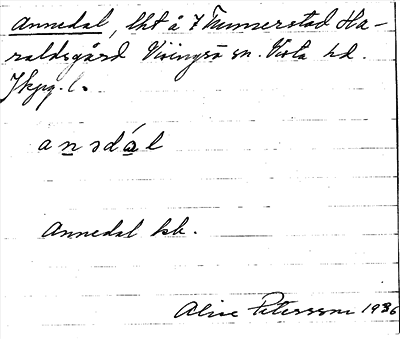 Annedal, lht å 7 Tunnerstad Ha-
raldsgård Visingsö sn. Vista hd.
Jkpg. l.
a n ə d á l
Annedal kb.
Alice Petersson 1936